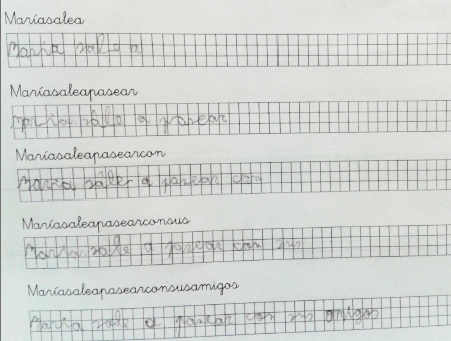 Maríasalea
Maria sale a
Maríasaleapasear
Maria sale a pasear
Maríasaleapasearcon
Maria saler a pasear con
Maríasaleapasearconsus
Maria sale a pasear con sus
Maríasaleapasearconsusamigos
Maria sale a pasear con sus amigos